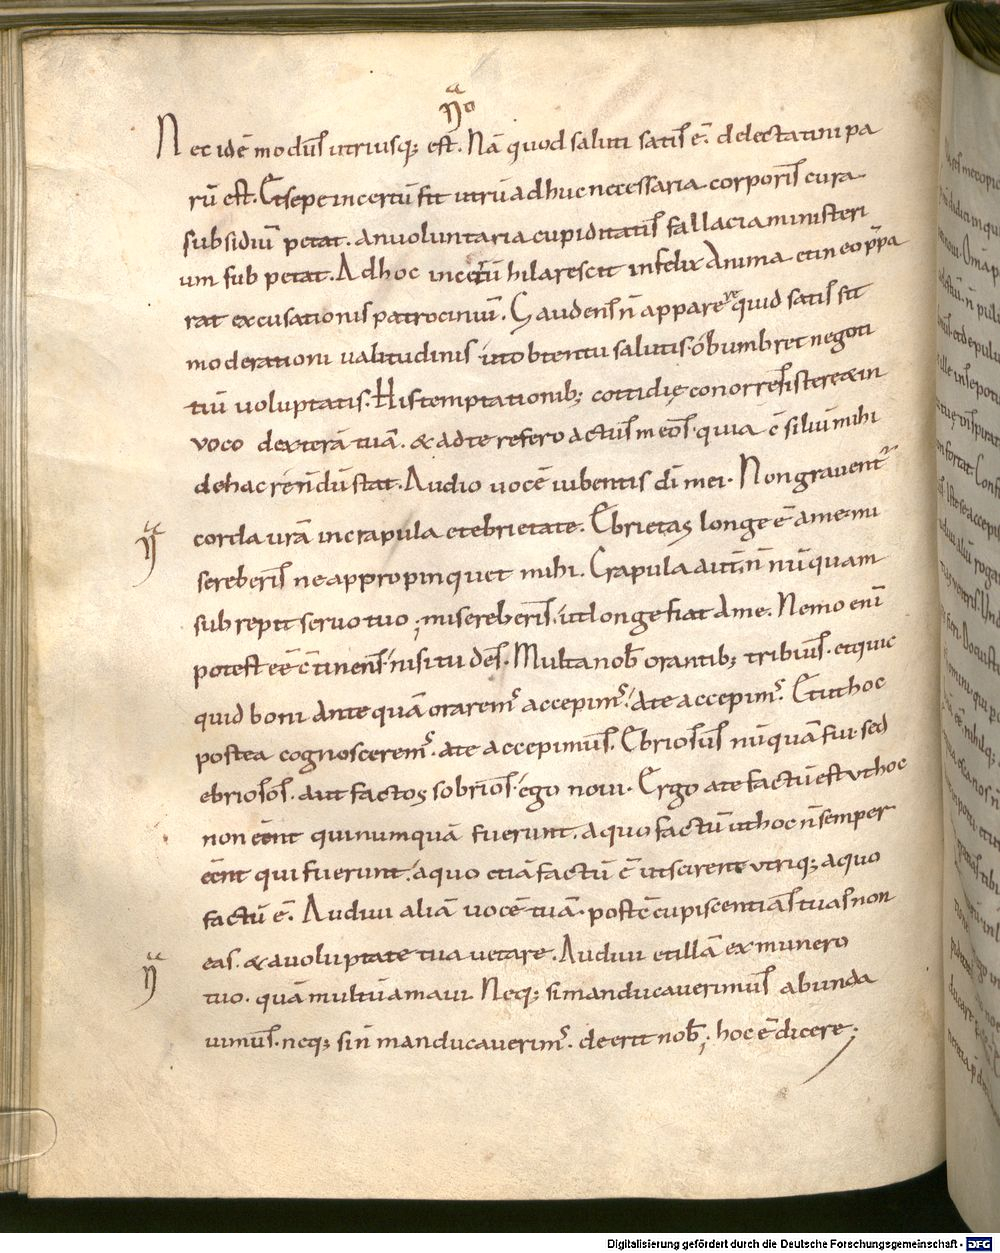 n̄o
Nec idē modus̄ utriusq; est. Nā quod saluti satis̄ ē. delectationi pa
rū est. Et sepe incertū fit utrū adhuc necessaria corporis̄ cura
subsidiū petat. an voluntaria cupiditatis̄ fallacia ministeri
um sub petat. Ad hoc incertū hilarescit infelix Anima et in eo p̄pa
rat excusationis patrociniū. Gaudens̄ n̄ apparere quid satis̄ sit
moderationi valitudinis. ut obtentu salutis. obumbret negoti
tiū voluptatis. His temptationib; cottidię conor resistere & in
voco dexterā tuā. & ad te refero actus̄ meos̄. quia c̄siliū mihi
de hac re n̄dū stat. Audio vocē iubentis di mei. Non gravent͛
n̄
corda vrā in crapula et ebrietate. Ebrietas longe ē a me. mi
sereberis̄ ne appropinquet mihi. Crapula aut̄ n̄ nū̄quam
subrepit servo tuo; misereberis̄. ut longe fiat A me. Nemo eni
potest eē c̄tinens̄. nisi tu des̄. Multa nob̄ orantib; tribuis̄. et quic
quid boni Ante quā orarem᷒ accepim᷒. A te accepim᷒. Et ut hoc
postea cognoscerem᷒. a te accepimus̄. Ebriosus̄ nū̄quā fui. sed
ebriosos̄. aut factos sobrios̄. ego novi. Ergo a te factū est vt hoc
non eēnt qui numquā fuerunt. a quo factū ut hoc n̄ semper
eēnt qui fuerunt. a quo etiā factū ē ut scirent utriq; a quo
factū ē. Audivi aliā vocē tuā. post c̄cupiscentias̄ tuas̄ non
eas. & a voluptate tua vetare. Audivi et illā ex munere
n̄
tuo. quā multū amavi. Neq; si manducaverimus̄ abunda
vimus̄. neq; si n̄ manducaverim᷒. deerit nob̄; hoc ē dicere;
Digitalisierung gefördert durch die Deutsche Forschungsgemeinschaft - DFG